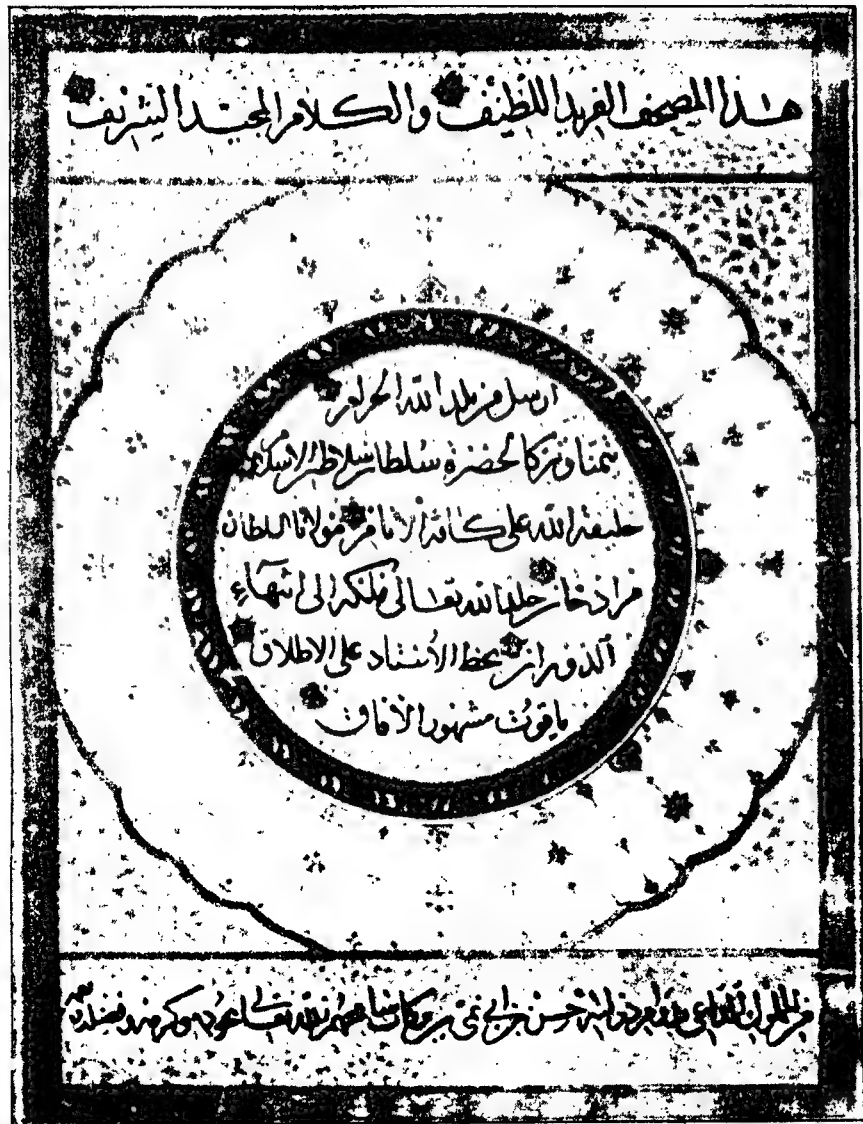 هذا المصحف الفريد اللطيف والكلام المجيد الشريف
ارسل من بلد الله الحرام
تيمنا وتبركا لحضرة سلطان سلاطين الاسلام
خليفة الله على كافة الانام مولانا السلطان
مراد خان خلد الله تعالى ملكه الى انتهاء
الدوران بخط الاستاد على الاطلاق
ياقوت مشهور الآفاق
من المملوك الداعي دولته حسن بن ابي نمي بن بركات الله تعالى بجوده وكرمه وفضله